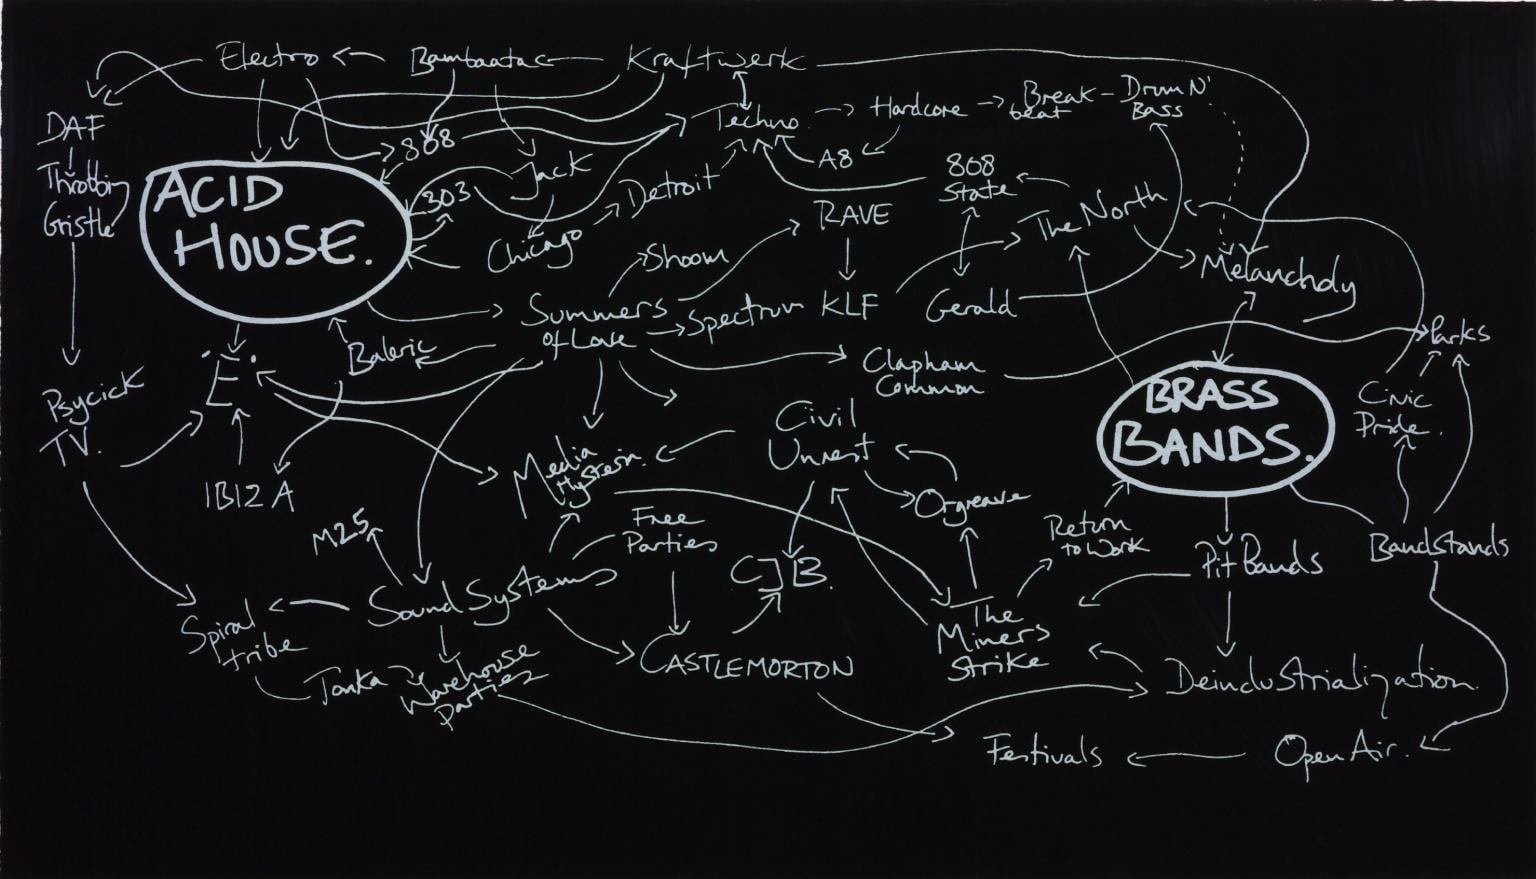 Electro
Bambaataa
Kraftwerk
DAF
Throbbing
Gristle
ACID
HOUSE.
808
303
Jack
Chicago
Detroit
Techno
Hardcore
Break
beat
Drum N'
Bass
A8
808
State
RAVE
The North
Melancholy
Shoom
Summers
of Love
Spectrum
KLF
Gerald
Parks
Baleric
'E'
Clapham
Common
BRASS
BANDS.
Civic
Pride.
Psycick
TV.
IBIZA
Media
Hysteria.
Civil
Unrest
Orgreave
M25
Free
Parties
CJB.
Return
to Work
Pit Bands
Bandstands
Sound Systems
Spiral
tribe
Tonka
Warehouse
Parties
CASTLEMORTON
The
Miners
Strike
Deindustrialization.
Festivals
Open Air.